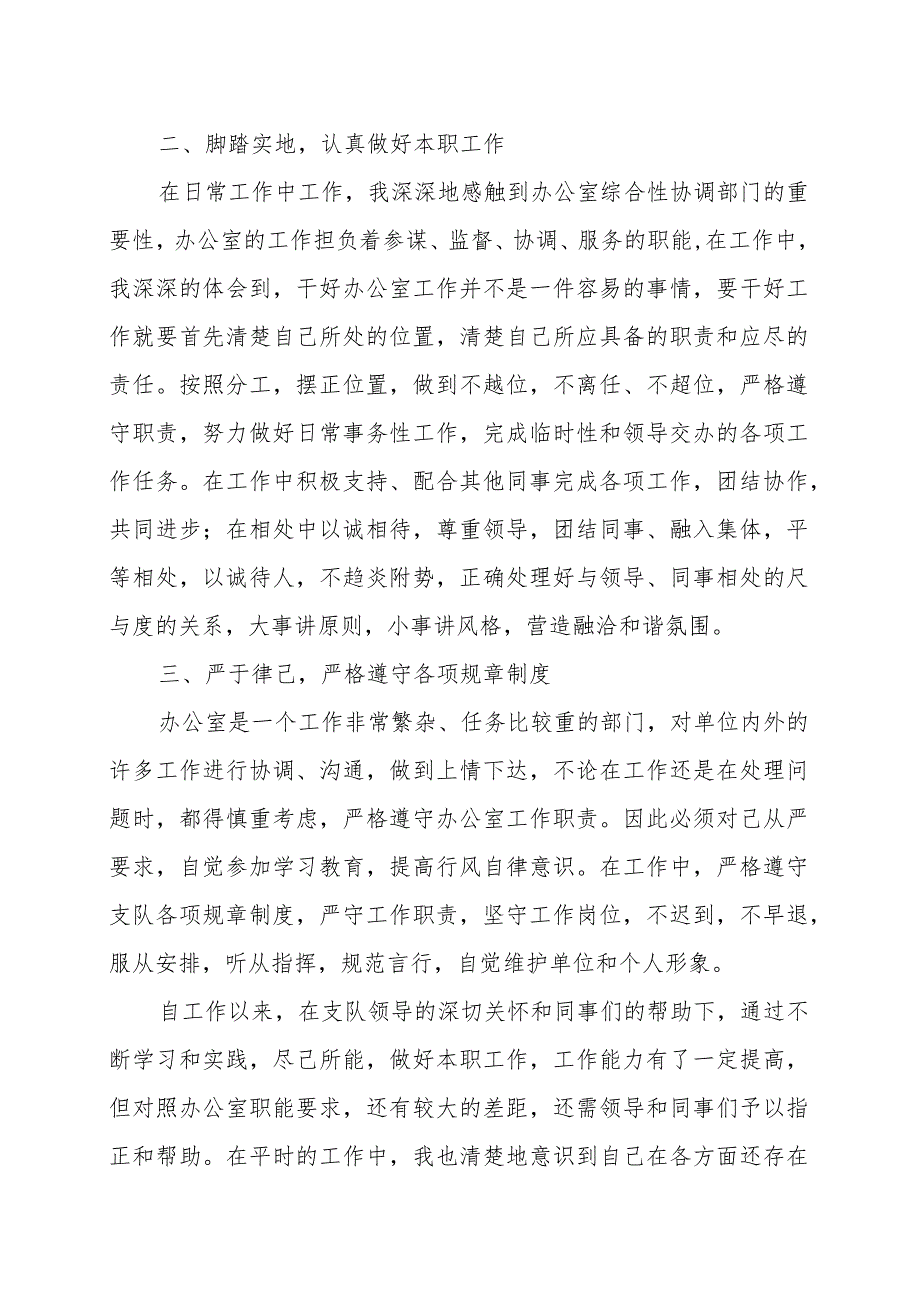 二、脚踏实地，认真做好本职工作
在日常工作中工作，我深深地感触到办公室综合性协调部门的重
要性，办公室的工作担负着参谋、监督、协调、服务的职能,在工作中，
我深深的体会到，干好办公室工作并不是一件容易的事情，要干好工
作就要首先清楚自己所处的位置，清楚自己所应具备的职责和应尽的
责任。按照分工，摆正位置，做到不越位，不离任、不超位，严格遵
守职责，努力做好日常事务性工作，完成临时性和领导交办的各项工
作任务。在工作中积极支持、配合其他同事完成各项工作，团结协作，
共同进步；在相处中以诚相待，尊重领导，团结同事、融入集体，平
等相处，以诚待人，不趋炎附势，正确处理好与领导、同事相处的尺
与度的关系，大事讲原则，小事讲风格，营造融洽和谐氛围。
三、严于律己，严格遵守各项规章制度
办公室是一个工作非常繁杂、任务比较重的部门，对单位内外的
许多工作进行协调、沟通，做到上情下达，不论在工作还是在处理问
题时，都得慎重考虑，严格遵守办公室工作职责。因此必须对己从严
要求，自觉参加学习教育，提高行风自律意识。在工作中，严格遵守
支队各项规章制度，严守工作职责，坚守工作岗位，不迟到，不早退，
服从安排，听从指挥，规范言行，自觉维护单位和个人形象。
自工作以来，在支队领导的深切关怀和同事们的帮助下，通过不
断学习和实践，尽己所能，做好本职工作，工作能力有了一定提高，
但对照办公室职能要求，还有较大的差距，还需领导和同事们予以指
正和帮助。在平时的工作中，我也清楚地意识到自己在各方面还存在